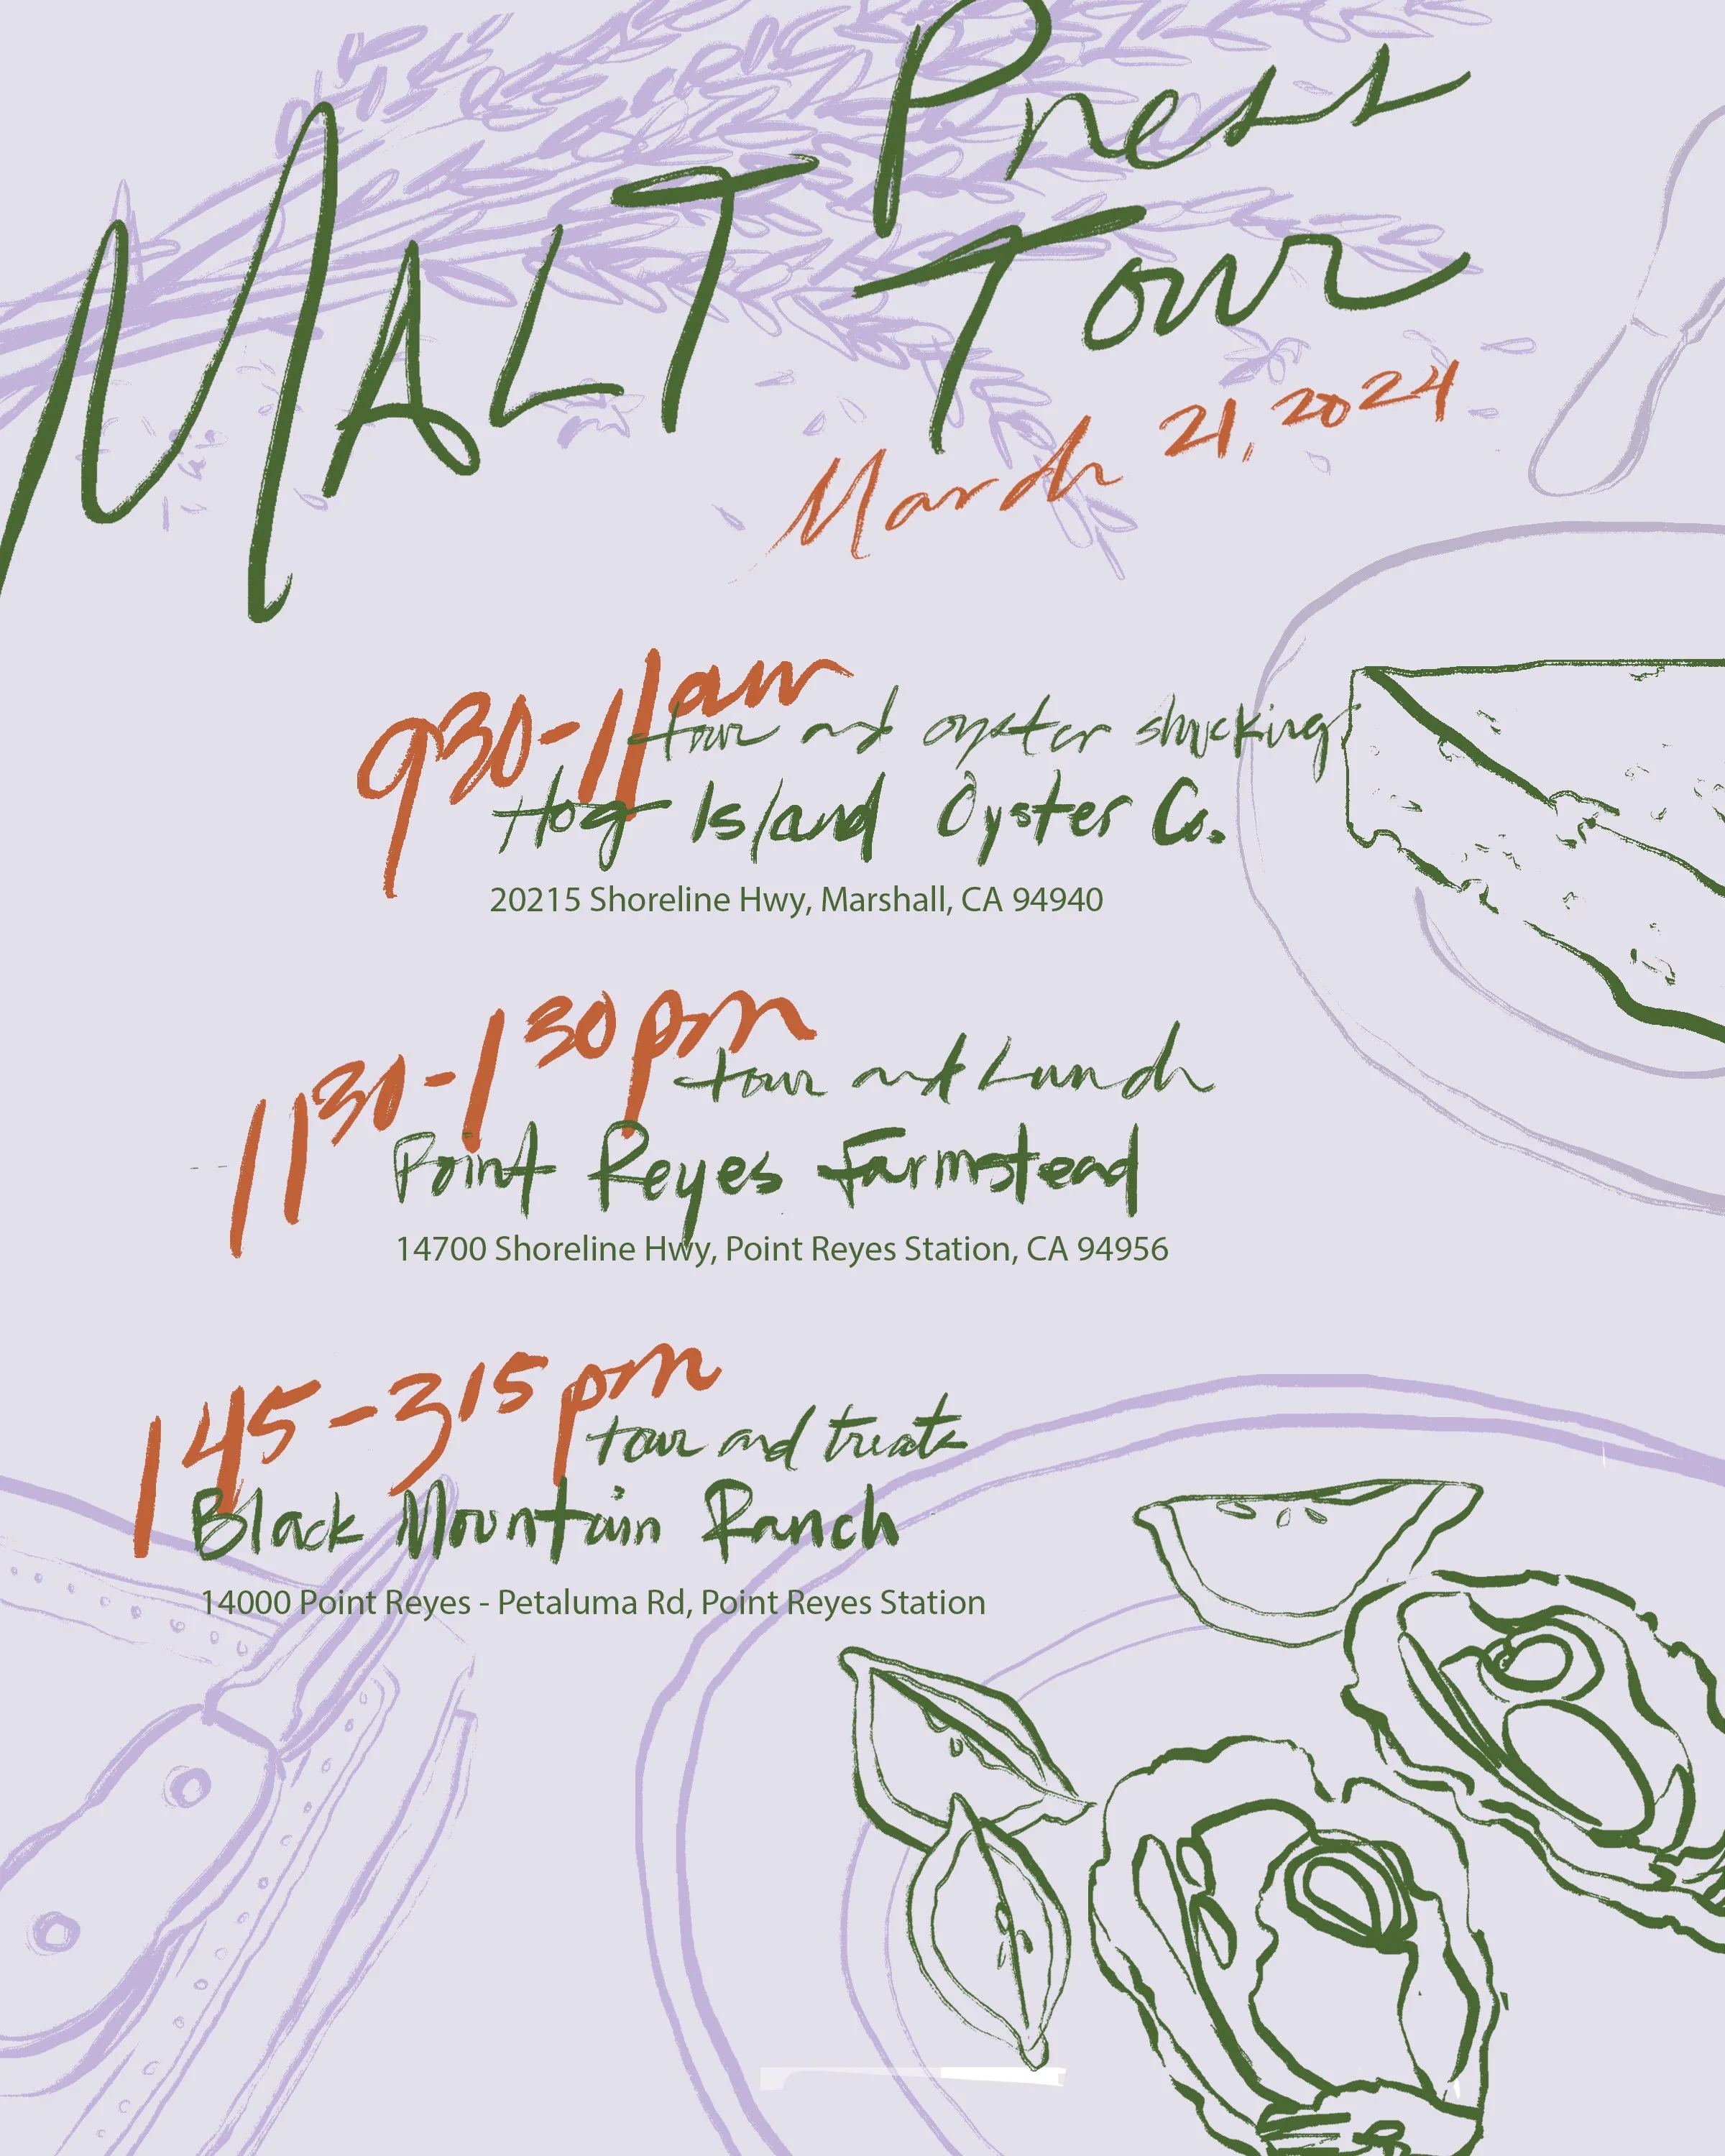 MALT Press
Tour
March 21, 2024
930-11am
tour and oyster shucking
Hog Island Oyster Co.
20215 Shoreline Hwy, Marshall, CA 94940
1130-130pm
tour and Lunch
Point Reyes Farmstead
14700 Shoreline Hwy, Point Reyes Station, CA 94956
145-315pm
tour and treats
Black Mountain Ranch
14000 Point Reyes - Petaluma Rd, Point Reyes Station